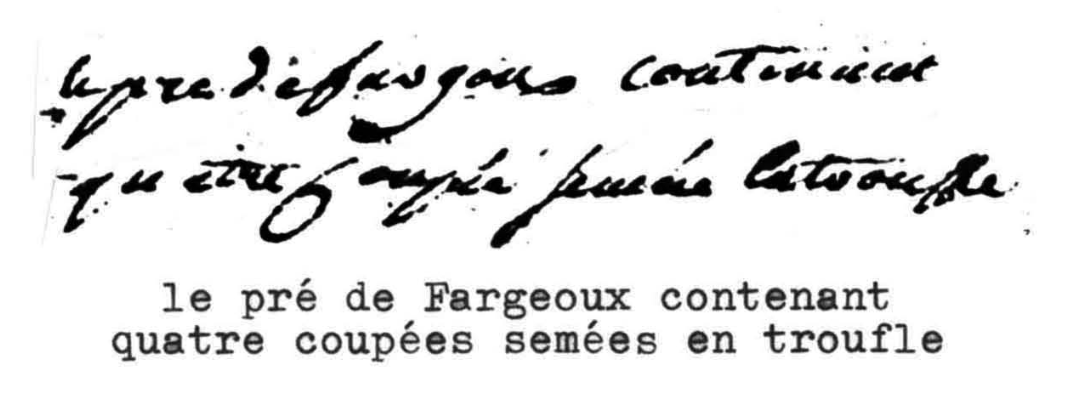 le pre de fargous contenant
quatre coupée semée la troufle
le pré de Fargeoux contenant
quatre coupées semées en troufle